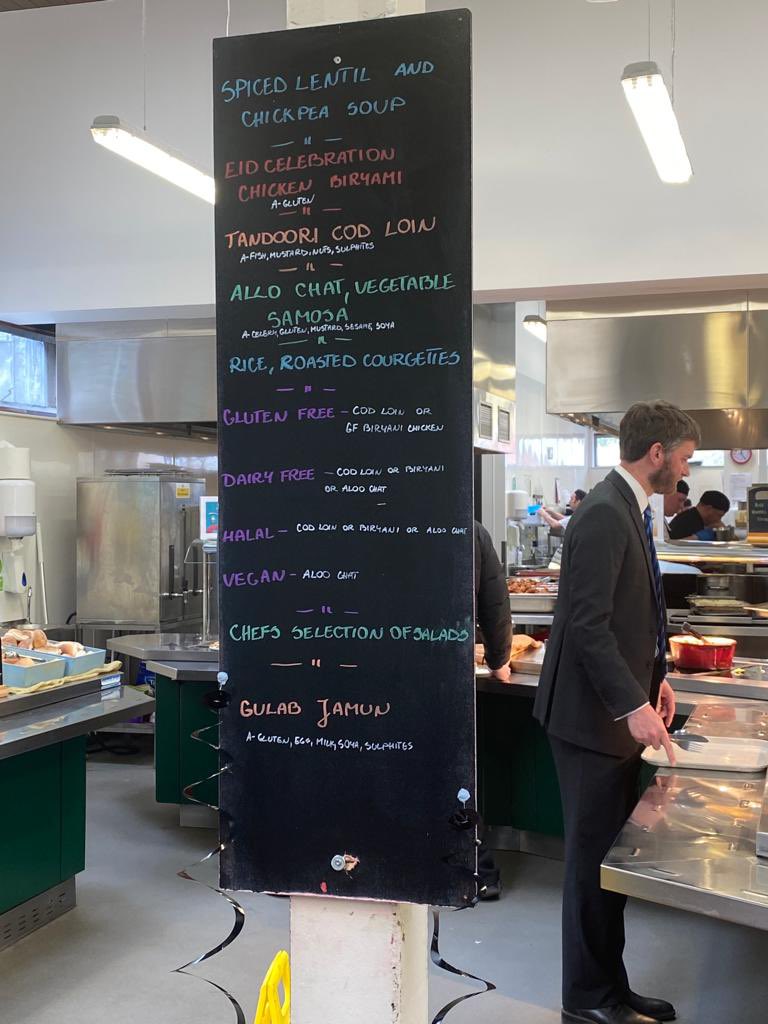 SPICED LENTIL AND
CHICKPEA SOUP
EID CELEBRATION
CHICKEN BIRYAMI
A-GLUTEN
TANDOORI COD LOIN
A-FISH, MUSTARD, NUTS, SULPHITES
ALLO CHAT, VEGETABLE
SAMOSA
A-CELERY, GLUTEN, MUSTARD, SESAME, SOYA
RICE, ROASTED COURGETTES
GLUTEN FREE - COD LOIN OR
GF BIRYANI CHICKEN
DAIRY FREE - COD LOIN OR BIRYANI
OR ALOO CHAT
HALAL - COD LOIN OR BIRYANI OR ALOO CHAT
VEGAN - ALOO CHAT
CHEFS SELECTION OF SALADS
GULAB JAMUN
A-GLUTEN, EGG, MILK, SOYA, SULPHITES